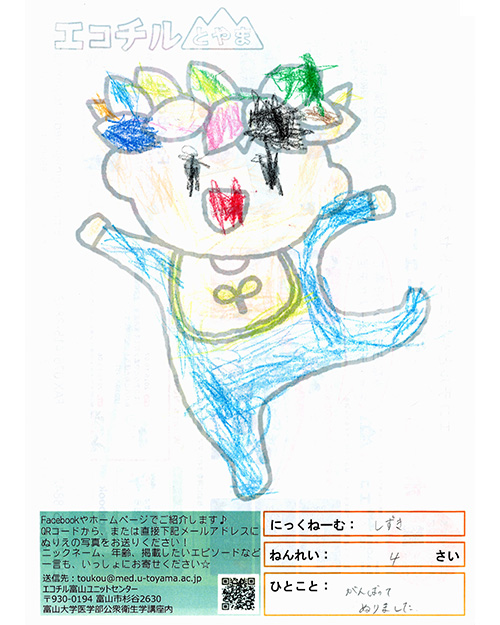 エコチルとやま
Facebookやホームページでご紹介します♪
QRコードから、または直接下記メールアドレスに
ぬりえの写真をお送りください！
ニックネーム、年齢、掲載したいエピソードなど
一言も、いっしょにお寄せください☆
送信先：toukou@med.u-toyama.ac.jp
エコチル富山ユニットセンター
〒930-0194 富山市杉谷2630
富山大学医学部公衆衛生学講座内
にっくねーむ： しずき
ねんれい： 4 さい
ひとこと： がんばって
ぬりました